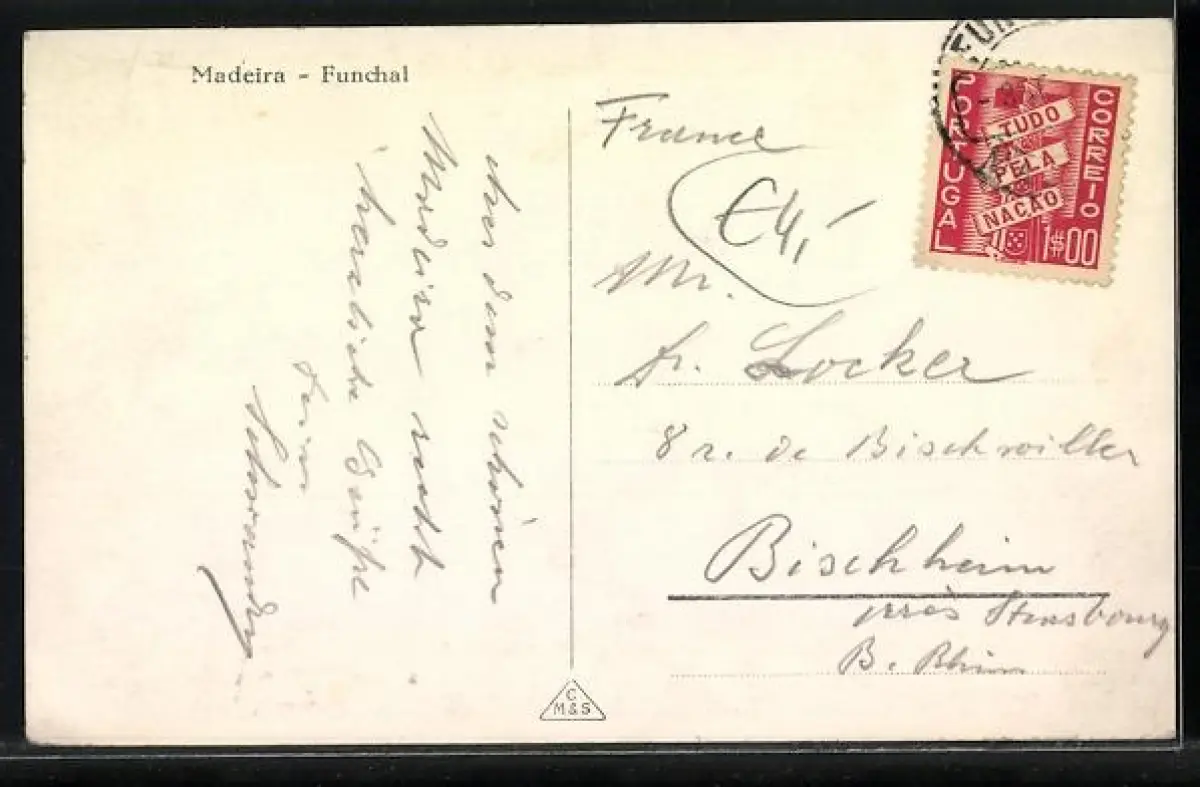 Madeira - Funchal
Aus dem schönen
Madeira recht
herzliche Grüße
France
€4,-
Mr.
Fr. Locker
8 r. de Bischwiller
Bischheim
près Strasbourg
B. Rhin
FUN
PORTUGAL
CORREIO
TUDO
PELA
NAÇÃO
1$00
C
M&S